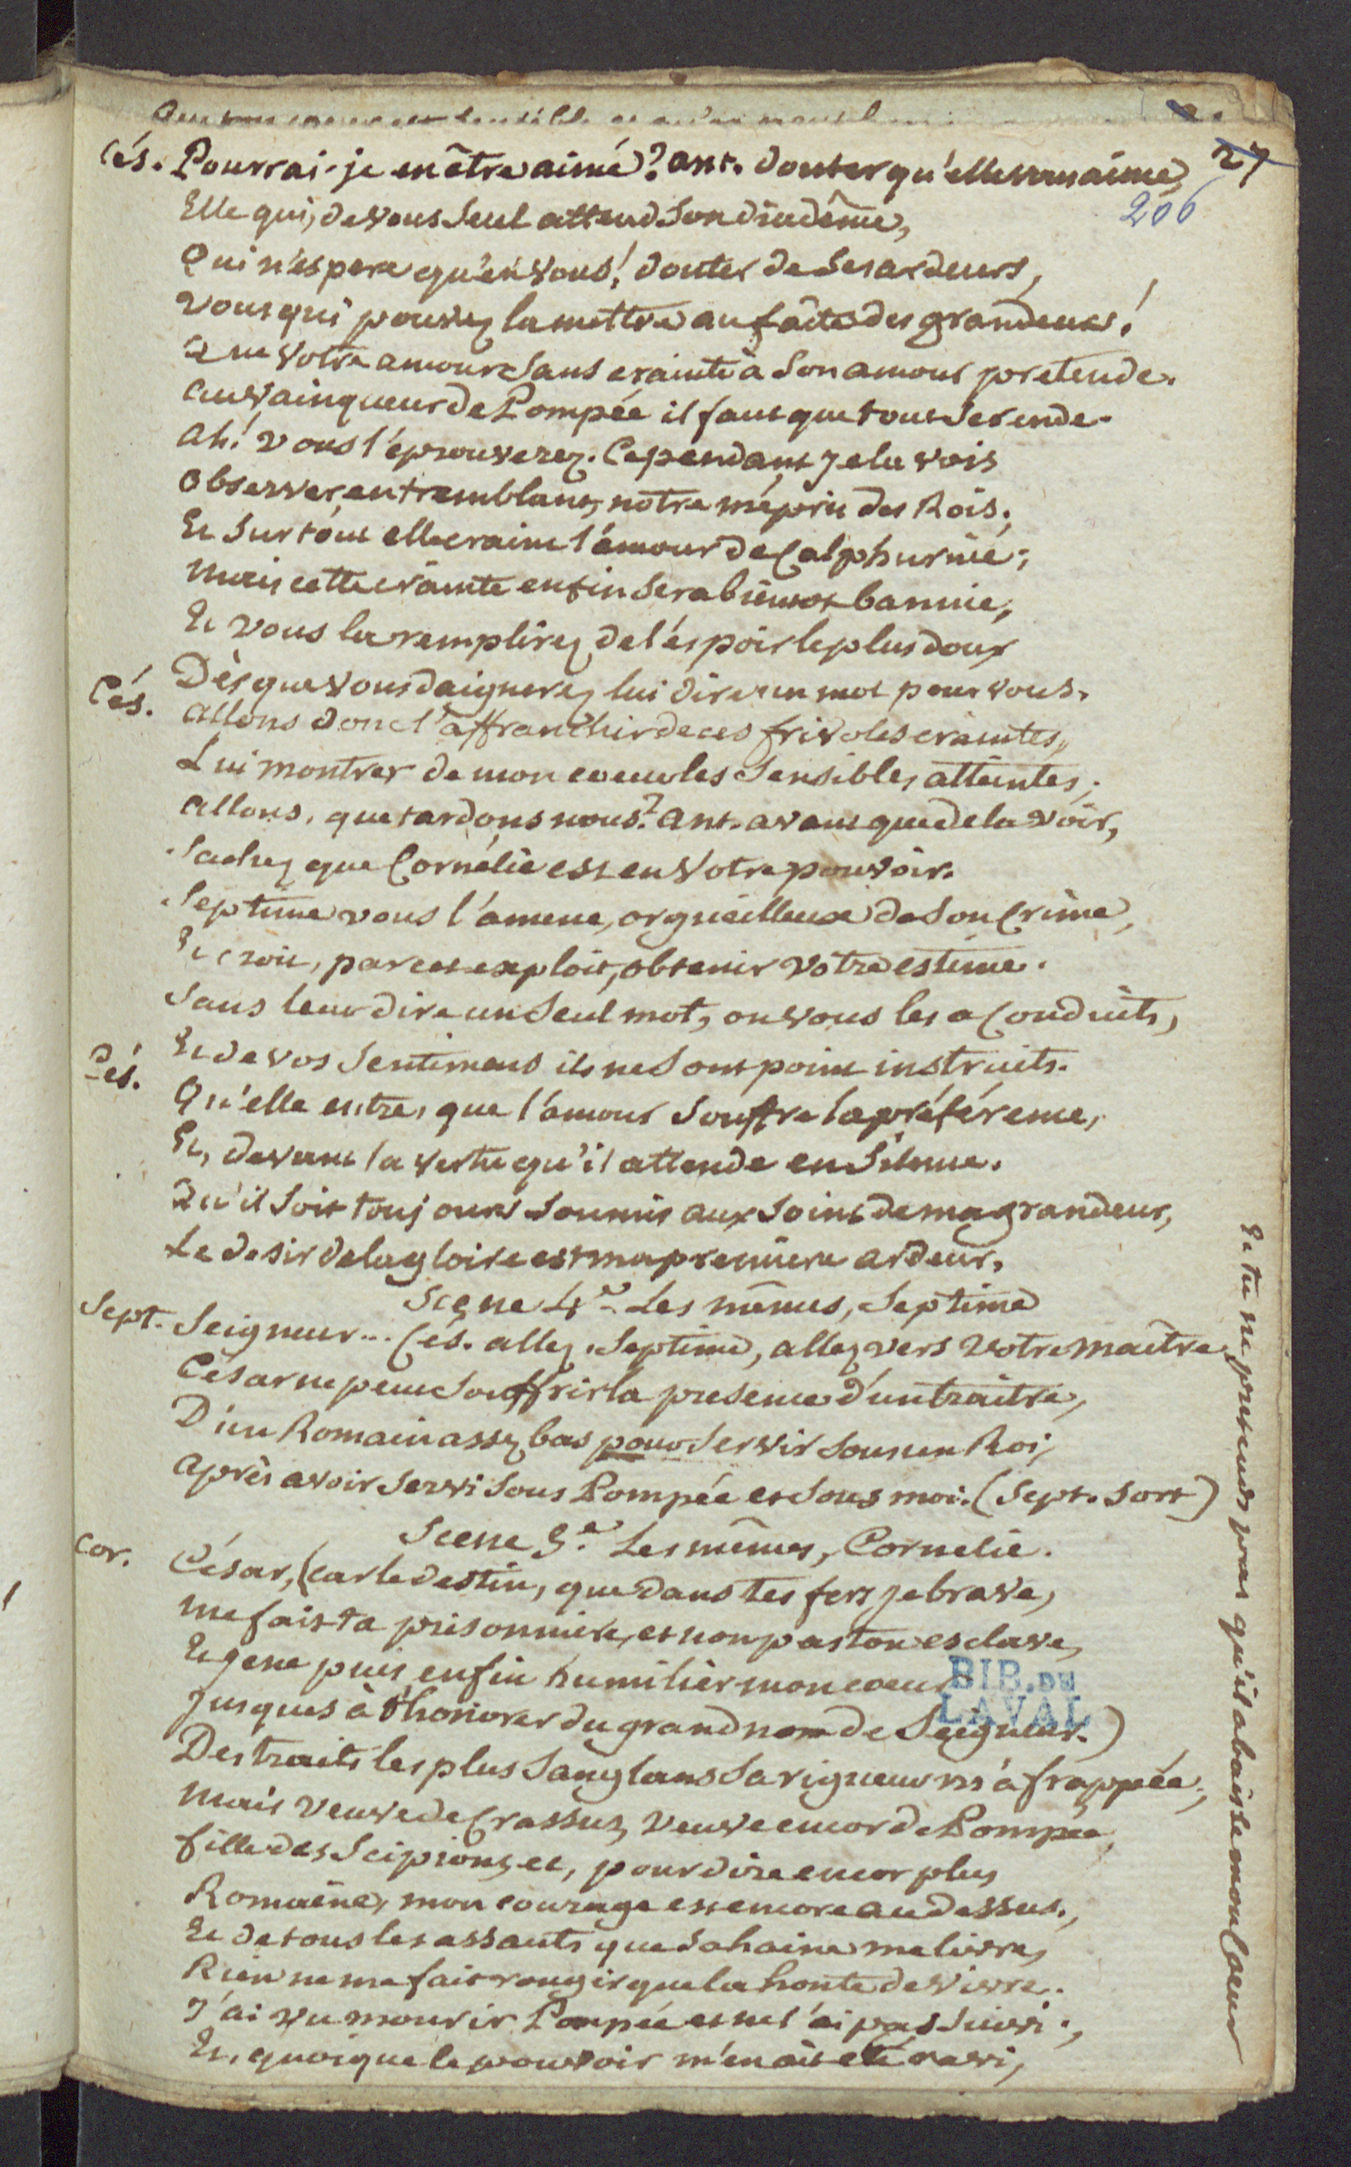 27
206
Cés. Pourrai-je en être aimé? Ant. Douter qu'elle vous aime,
Elle qui, de vous seul attend son diadême,
Qui n'espere qu'en vous! Douter de ses ardeurs,
Vous qui pouvez la mettre au faîte des grandeurs!
Que votre amour sans crainte à son amour pretende.
Au vainqueur de Pompée il faut que tout se rende.
Ah! vous l'éprouverez. Cependant je la vois
Observer, en tremblant, notre mépris des Rois;
Et surtout elle craint l'amour de Calphurnie;
Mais cette crainte enfin sera bientot bannie,
Et vous la remplirez de l'espoir le plus doux
Dès que vous daignerez lui dire un mot pour vous.
Cés.
Allons donc l'affranchir de ces frivoles craintes,
Lui montrer de mon coeur les sensibles atteintes;
Allons, que tardons nous? Ant. avant que de la voir,
Sachez que Cornélie est en votre pouvoir.
Septime vous l'amene, orgueilleux de son crime,
Et croit, par cet exploit, obtenir votre estime.
Sans leur dire un seul mot, on vous les a conduits,
Et de vos sentimens ils ne sont point instruits.
Cés.
Qu'elle entre, que l'amour souffre la préférence,
Et, devant la vertu qu'il attende en silence.
Qu'il soit toujours soumis aux soins de ma grandeur,
Le desir de la gloire est ma premiere ardeur.
Scene 4e Les mêmes, Septime
Sept. Seigneur... Cés. allez, Septime, allez vers votre maître,
César ne peut souffrir la presence d'un traître,
D'un Romain assez bas pour servir sous un Roi,
Après avoir servi sous Pompée et sous moi. (Sept. sort)
Scene 5e. Les mêmes, Cornelie.
Cor.
César, (car le destin, que dans tes fers je brave,
Me fait ta prisonnière, et non pas ton esclave,
Et je ne puis enfin humilier mon coeur
Jusques à t'honorer du grand nom de Seigneur.)
Des traits les plus sanglans sa rigueur m'a frappée;
Mais veuve de Crassus, veuve encor de Pompée,
Fille des Scipions, et, pour dire encor plus
Romaine, mon courage est encore au dessus.,
Et de tous les assauts que sa haine me livre,
Rien ne me fait rougir que la honte de vivre.
J'ai vu mourir Pompée et ne l'ai pas suivi;
Et, quoique le pouvoir m'en ait été ravi,
Et tu ne pretends pas qu'il abaisse mon Coeur
BIB. DE
LAVAL